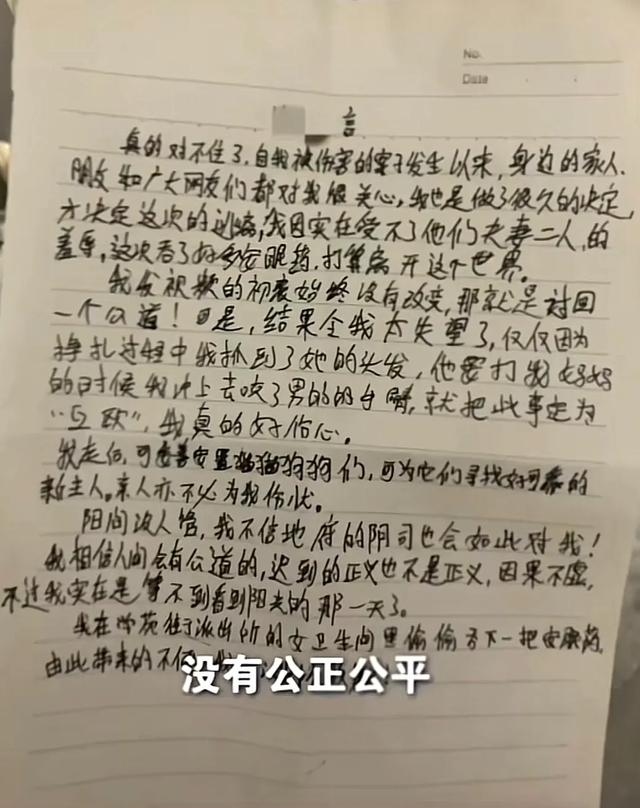 No.
Date
言
真的对不住了,自我被伤害的案子发生以来,身边的家人、
朋友和广大网友们都对我很关心,我也是做了很久的决定,
才决定这次的,我因实在受不了他们夫妻二人的
羞辱,这次吞了好多安眠药,打算离开这个世界。
我发视频的初衷始终没有改变,那就是讨回
一个公道!但是,结果令我太失望了,仅仅因为
挣扎过程中我抓到了她的头发,他要打我妈妈
的时候我冲上去咬了男的的手臂,就把此事定为
“互殴”,我真的好伤心。
我走后,可妥善安置猫猫狗狗们,可为它们寻找好可靠的
新主人。亲人亦不必为我伤忧。
阳间没人管,我不信地府的阴司也会如此对我!
我相信人间会有公道的,迟到的正义也不是正义,因果不虚,
不过我实在是等不到看到阳光的那一天了。
我在学苑街派出所的女卫生间里偷偷吞下一把安眠药,
由此带来的不便
没有公正公平